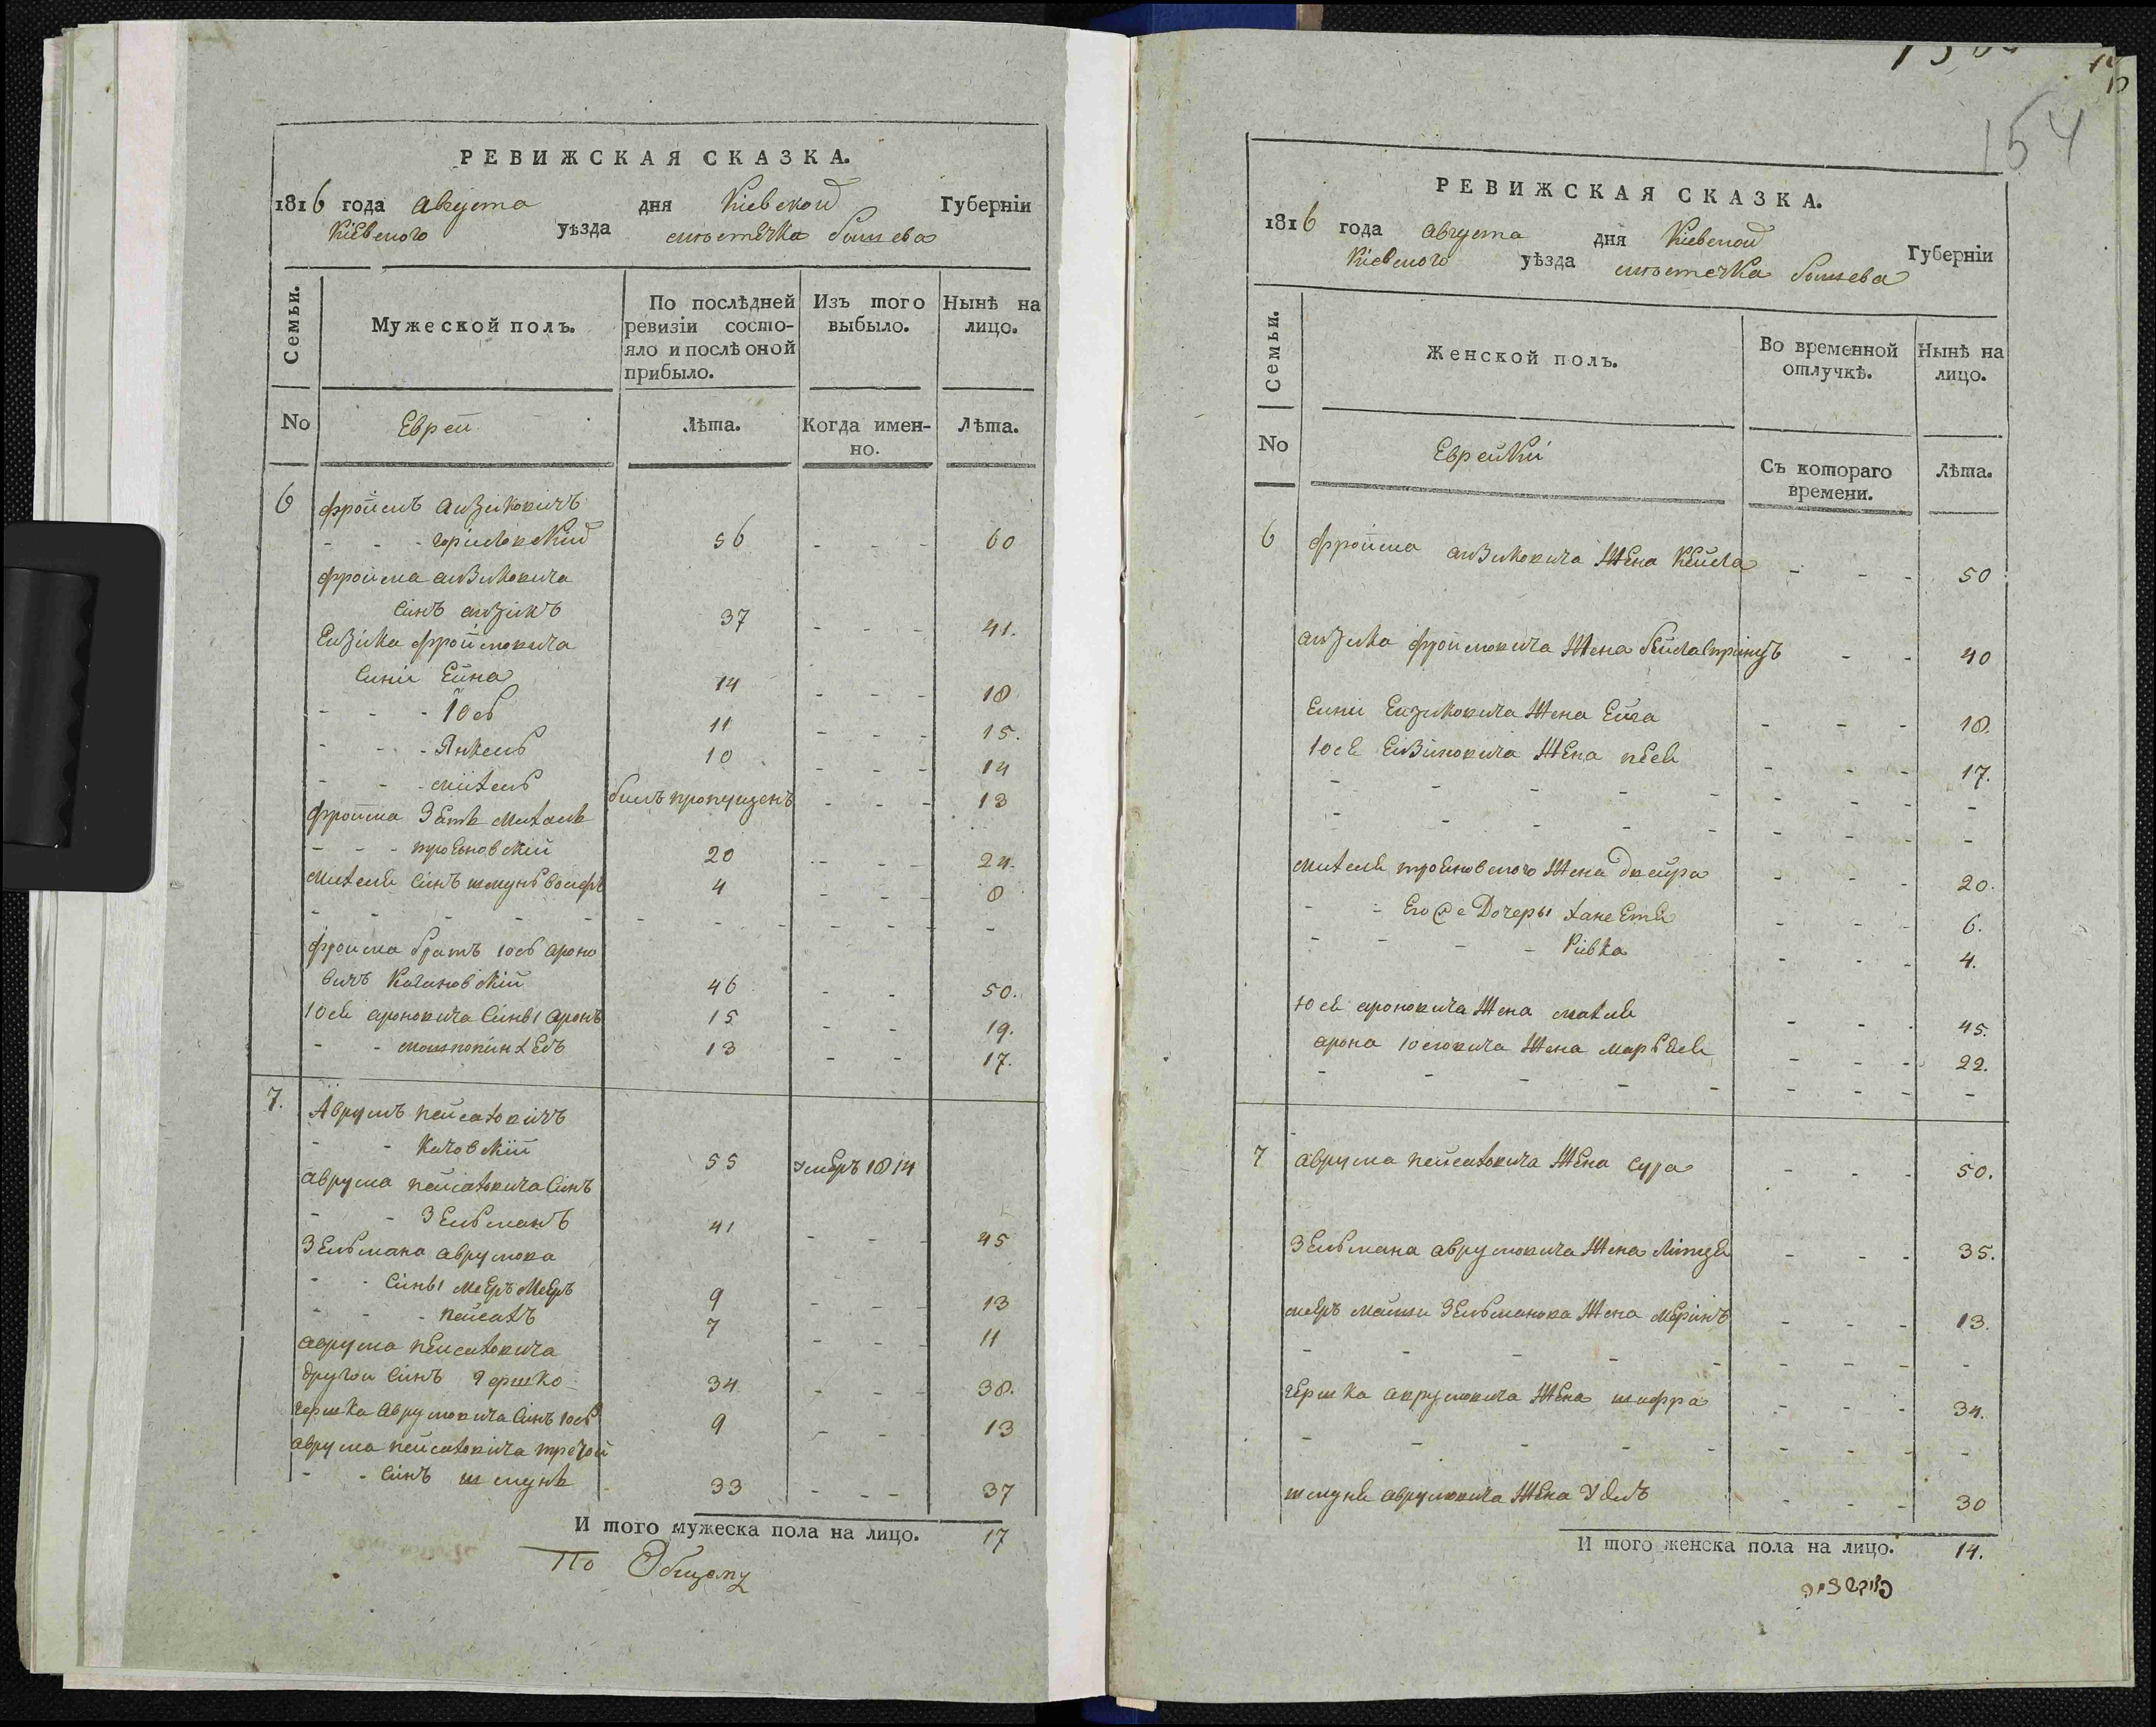 РЕВИЖСКАЯ СКАЗКА.
1816 года августа дня Кіевской Губерніи
Кіевского уѣзда мѣстечка
Семьи.
Мужеской полъ.
По послѣдней ревизіи состояло и послѣ оной прибыло.
Изъ того выбыло.
Нынѣ на лицо.
No
Евреи
Лѣта.
Когда именно.
Лѣта.
6 Фроимъ айзиковичъ
- - - 56 - - - 60
фроима айзиковича
синъ айзикъ 37 - - - 41.
Ейзика фроймовича
сини Ейна 14 - - - 18
- - - Йось 11 - - - 15.
- - - Янкель 10 - - - 14
- - михель билъ пропущенъ - - - 13
фроима Зять михаель
- - - 20 - - - 24.
михеля синъ шмунь волфъ 4 - - - 8
- - - - - - - - - - - -
фроима братъ іось ароно
вичъ Кагановскій 46 - - 50.
Іося ароновича сины аронъ 15 - - 19.
- - мошко 13 - - 17.
7. Аврумъ пейсаховичъ
- - 55 умеръ 1814
аврума пейсаховича синъ
- - Зельманъ 41 - - - 45
Зельмана аврумова
- - сины меръ 9 - - - 13
- - - пейсахъ 7 - - - 11
аврума пейсаховича
другой синъ гершко 34 - - - 38.
гершка аврумовича синъ іось 9 - - - 13
аврума пейсаховича третой
- - синъ шмуня 33 - - - 37
И того мужеска пола на лицо. 17
По Общему
154
РЕВИЖСКАЯ СКАЗКА.
1816 года августа дня Кіевской Губерніи
Кіевского уѣзда мѣстечка
Семьи.
Женской полъ.
Во временной отлучкѣ.
Нынѣ на лицо.
No
Еврейки
Съ котораго времени.
Лѣта.
6 фроима айзиковича жена Кейла - - - 50
айзика фроимовича жена - - 40
Ейни Ейзиковича жена Ейга - - - 18.
Іося Ейзиковича жена песя - - - 17.
- - - - - - - - -
- - - - - - - - -
михеля жена двейра - - - 20.
- - Его же Дочеры хане Етя - - - 6.
- - - - Ривка - - - 4.
Іося ароновича жена - - - 45.
арона Іосіовича жена - - - 22.
- - - - - - - - -
7 аврума пейсаховича жена сура - - - 50.
Зельмана аврумовича жена - - - 35.
меръ Зельманова жена - - - 13.
- - - - - - - - -
гершка аврумовича жена шифра - - - 34.
- - - - - - - - -
шмуня аврумовича жена - - - 30
И того женска пола на лицо. 14.